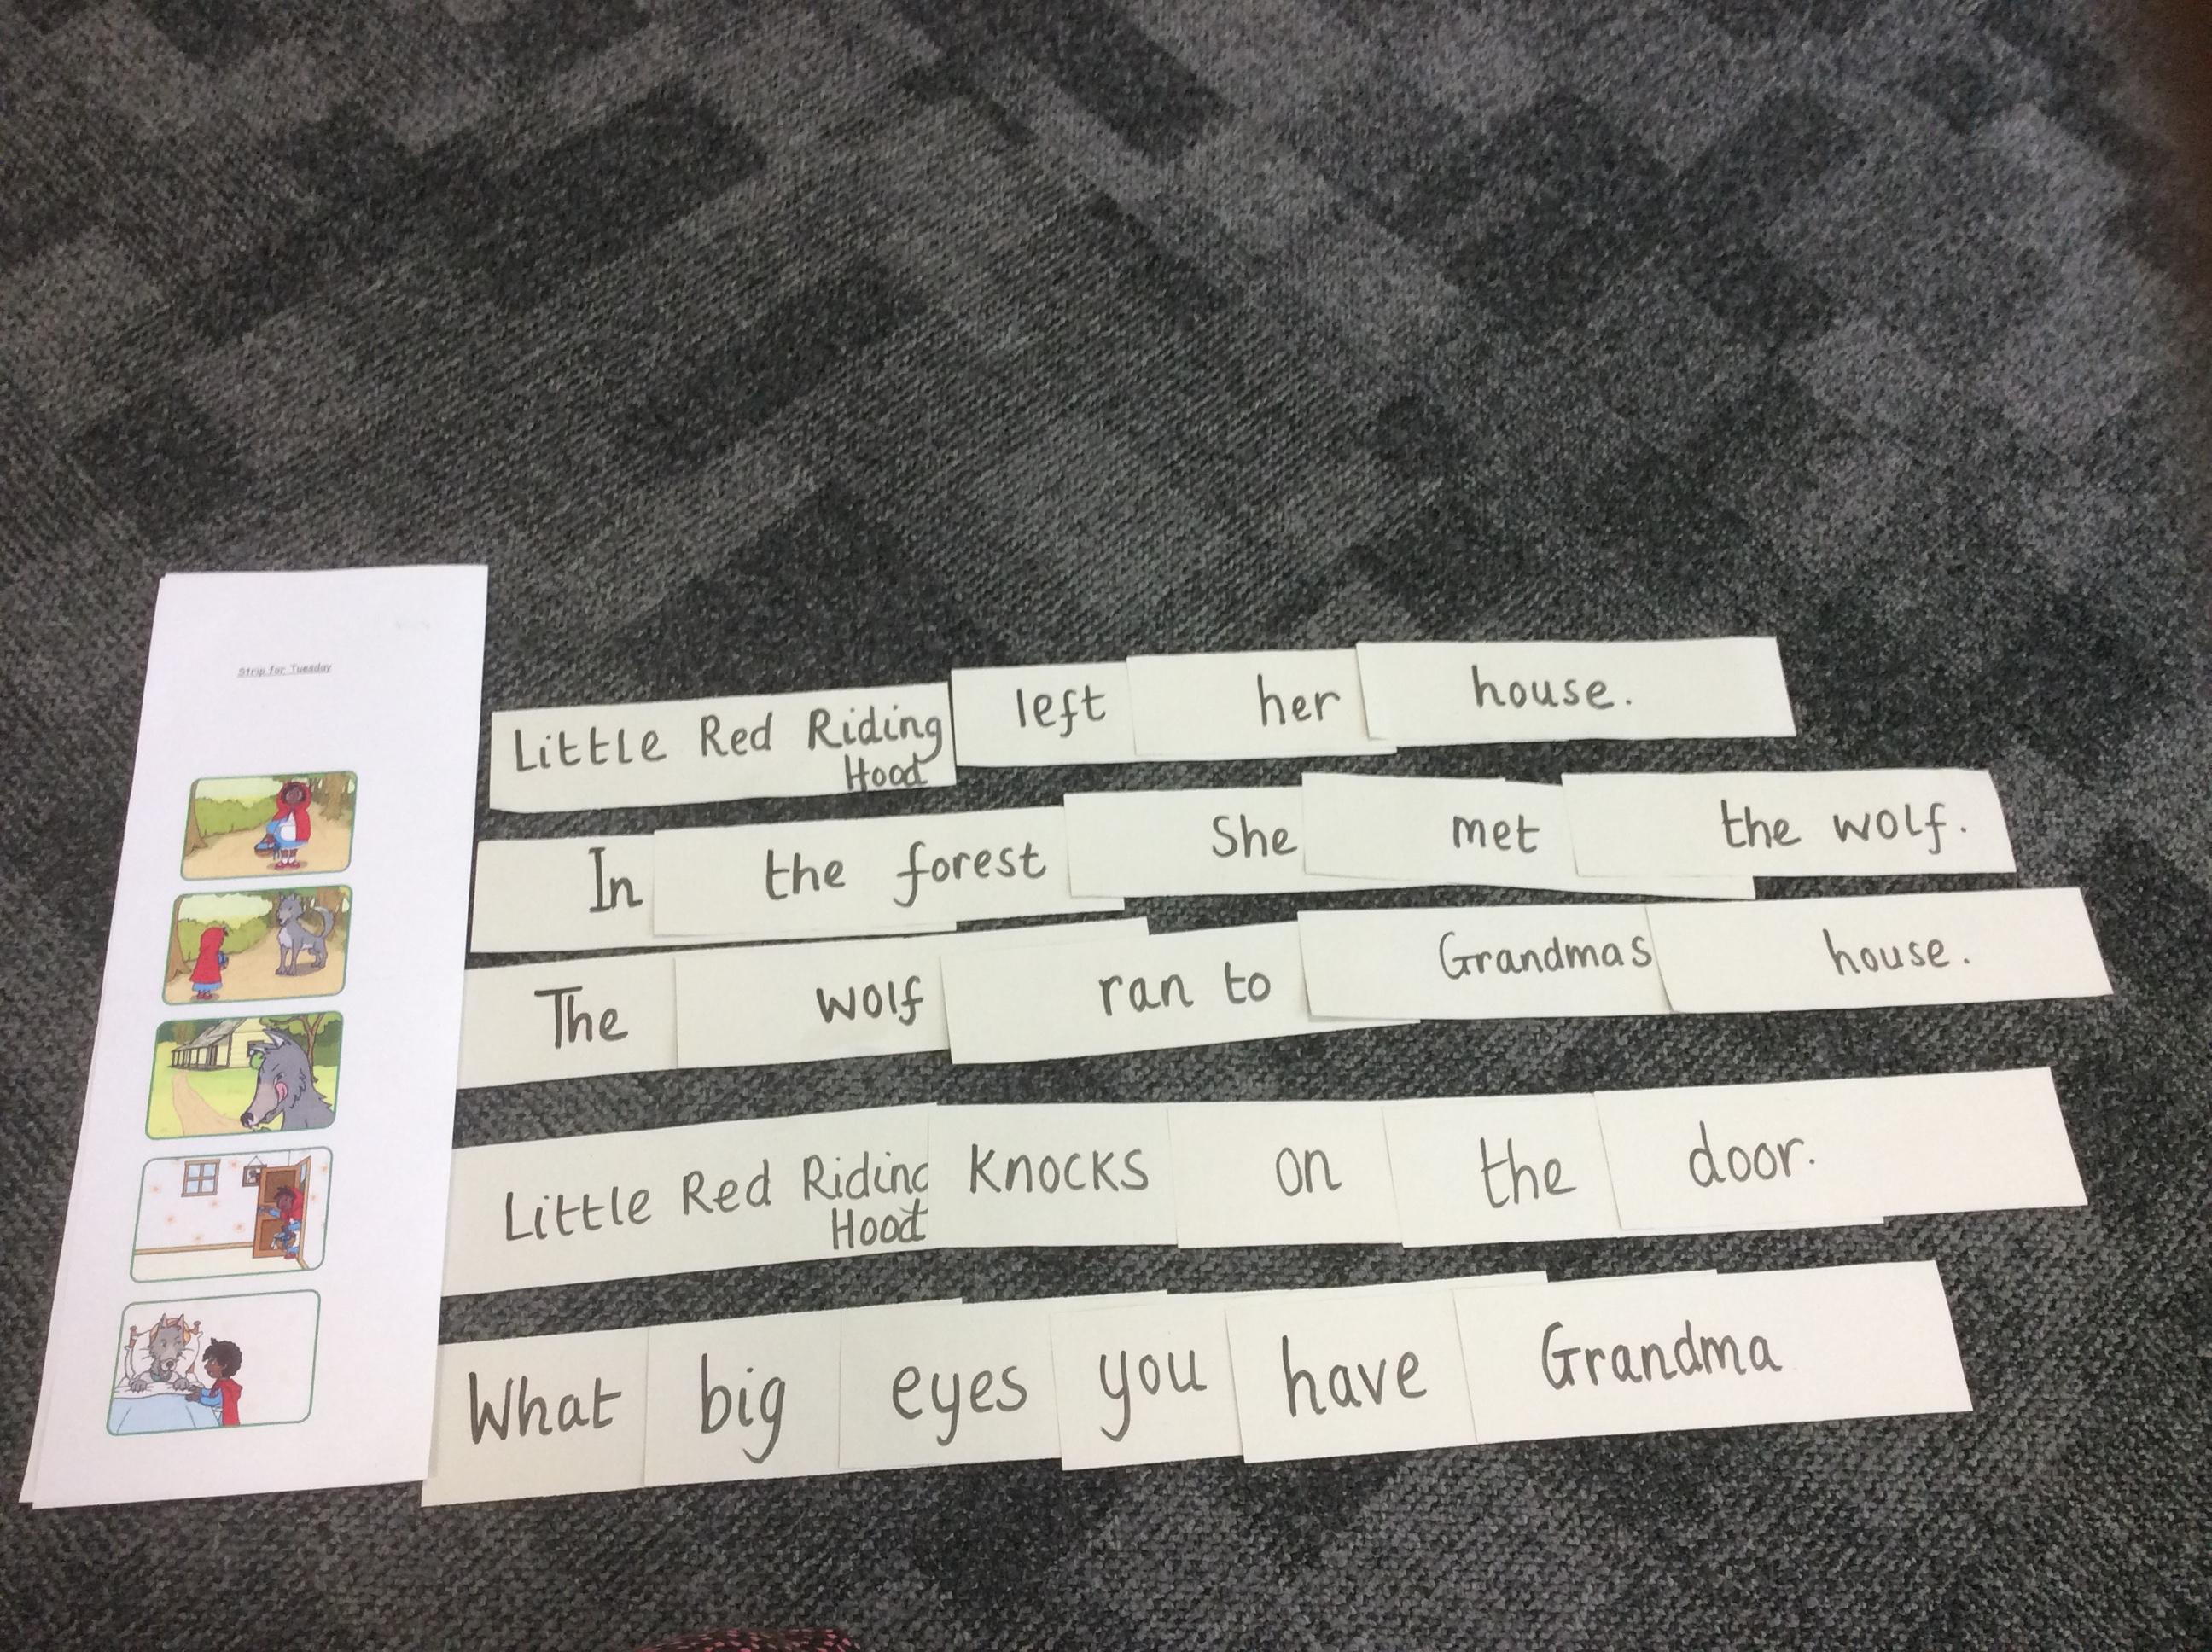 Strip for Tuesday
Little Red Riding
Hood left her house.
In the forest She met the wolf.
The wolf ran to Grandmas house.
Little Red Riding
Hood Knocks on the door.
What big eyes you have Grandma